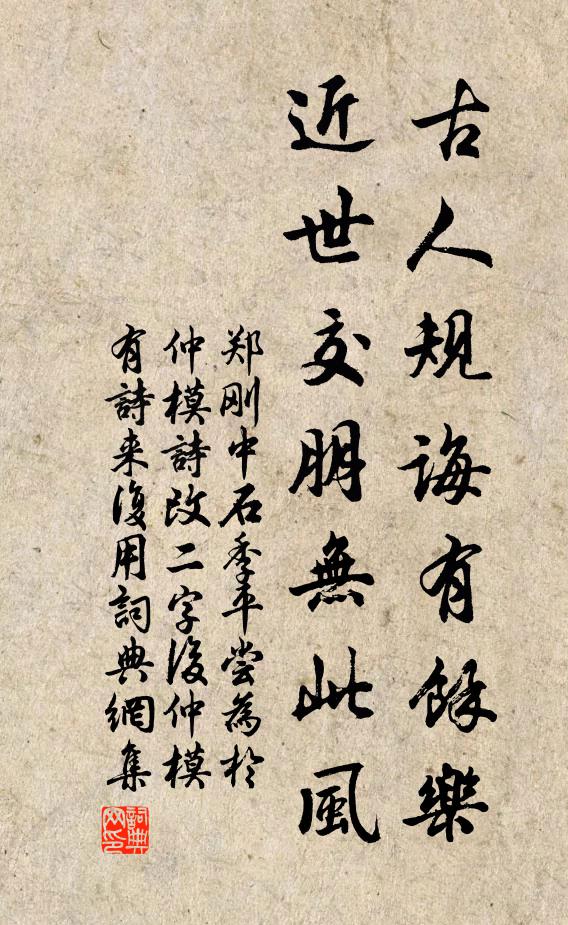 古人規誨有餘樂
近世交朋無此風
郑刚中石季平尝為於
仲模詩改二字後仲模
有詩来復用詞典網集
詞典
网印